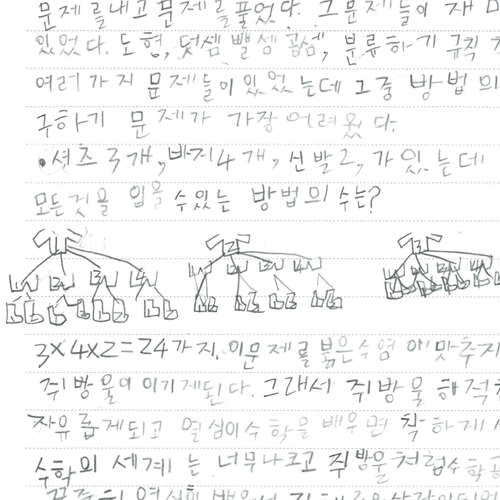 문제를내고문제를풀었다. 그문제들이 재미
있었다. 도형, 덧셈 뺄셈 곱셈, 분류하기 규칙
여러가지 문제들이있었는데 그중 방법의
구하기 문제가 가장 어려웠다.
•셔츠3개,바지4개, 신발2, 가있는데
모든것을 입을 수있는 방법의 수는?
1 2 3
1 2 3 4 1 2 3 4 1 2 3 4
3×4×2=24가지. 이문제를붉은수염이맞추지
쥐방울이이기게된다. 그래서 쥐방울해적
자유롭게되고 열심이수학을배우면 착하게
수학의 세계는 너무나크고 쥐방울처럼수학
열심히 배우